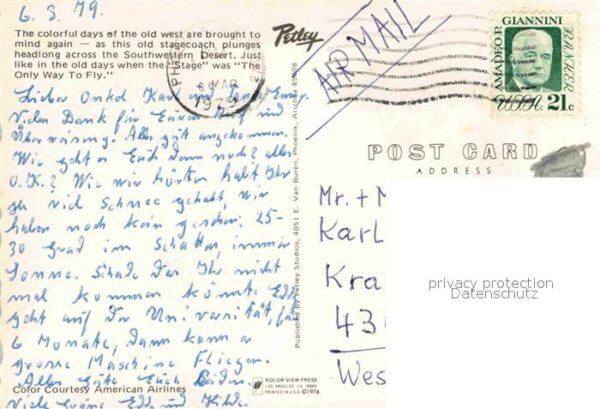 6. 3. 79.
The colorful days of the old west are brought to
mind again — as this old stagecoach plunges
headlong across the Southwestern Desert. Just
like in the old days when the "Stage" was "The
Only Way To Fly."
Petley
AIR MAIL
MAR
1979
AMADEO P.
GIANNINI
BANKER
USA 21c
Lieber Onkel Karl
Vielen Dank für Euren Brief und
Überweisung. Alles gut angekommen.
Wie geht es Euch denn noch? alles
O.K.? Wie wir hörten habt Ihr
ja viel Schnee gehabt, wir
haben noch kein gesehen. 25-
30 Grad im Schatten, immer
Sonne. Schade das Ihr nicht
mal kommen könnte. Eddi
geht auf die Universität, für
6 Monate, dann kann er
grosse Maschine Fliegen.
Alles Gute Euch Beiden
Viele Grüsse Edd. und Hilde.
Color Courtesy American Airlines
Published by Petley Studios, 4051 E. Van Buren, Phoenix, Arizona 85008
POST CARD
ADDRESS
Mr. + M
Karl
Kra
43
Wes
privacy protection
Datenschutz
KOLOR VIEW PRESS
LOS ANGELES, CA.
PRINTED IN U.S.A. ©1976